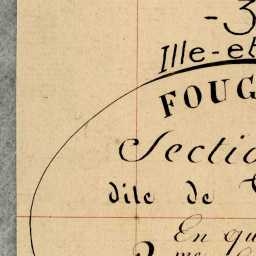 -3
Ille-et
FOUG
Sectio
dite de
En qu